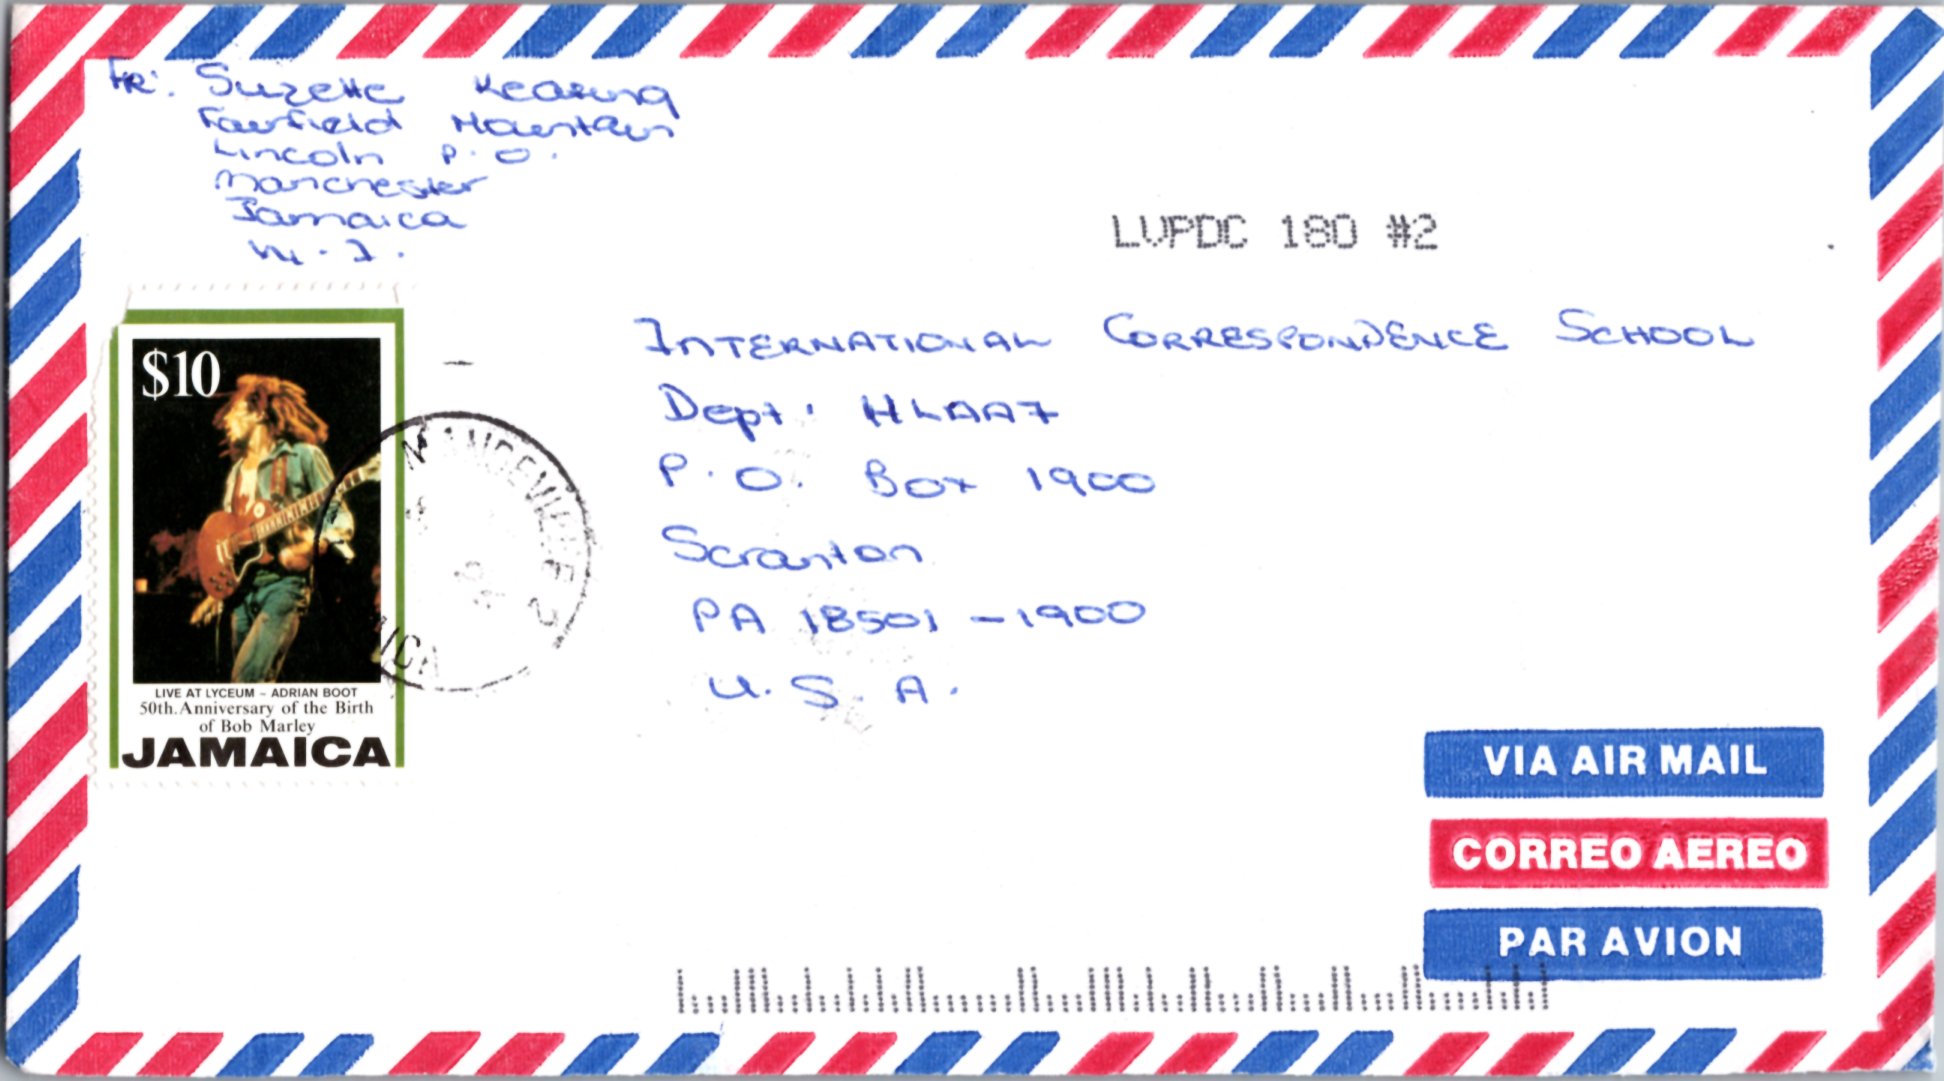 FR: Suzette Keating
Fairfield Mountain
Lincoln P.O.
Manchester
Jamaica
W.I.
LVPDC 180 #2
INTERNATIONAL CORRESPONDENCE SCHOOL
Dept. HLAA7
P.O. Box 1900
Scranton
PA 18501-1900
U.S.A.
$10
LIVE AT LYCEUM - ADRIAN BOOT
50th. Anniversary of the Birth
of Bob Marley
JAMAICA
MANDEVILLE
VIA AIR MAIL
CORREO AEREO
PAR AVION